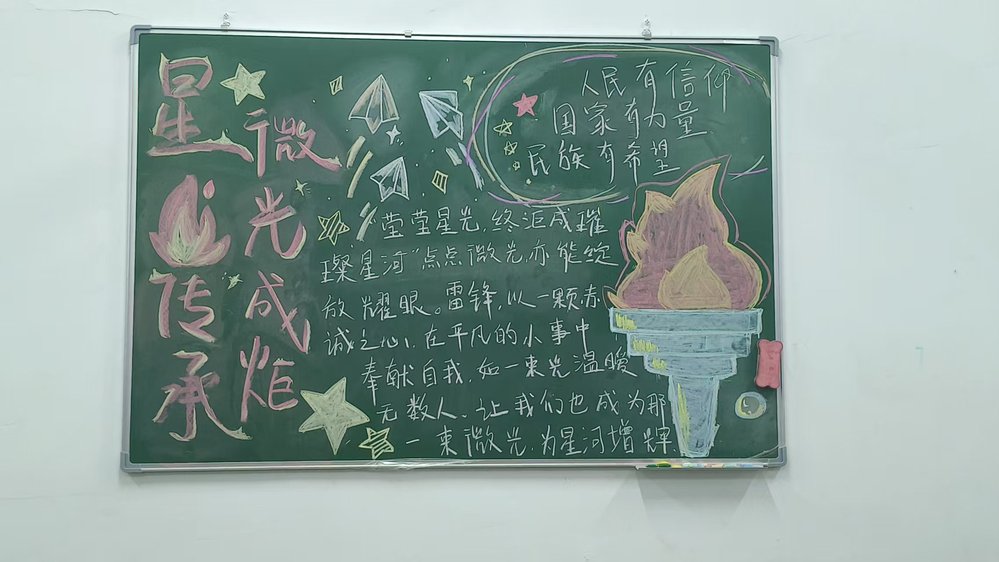 星火传承
微光成炬
人民有信仰
国家有力量
民族有希望
莹莹星光,终汇成璀
璨星河"点点微光,亦能绽
放耀眼。雷锋,以一颗赤
诚之心,在平凡的小事中
奉献自我,如一束光温暖
无数人.让我们也成为那
一束微光,为星河增辉.